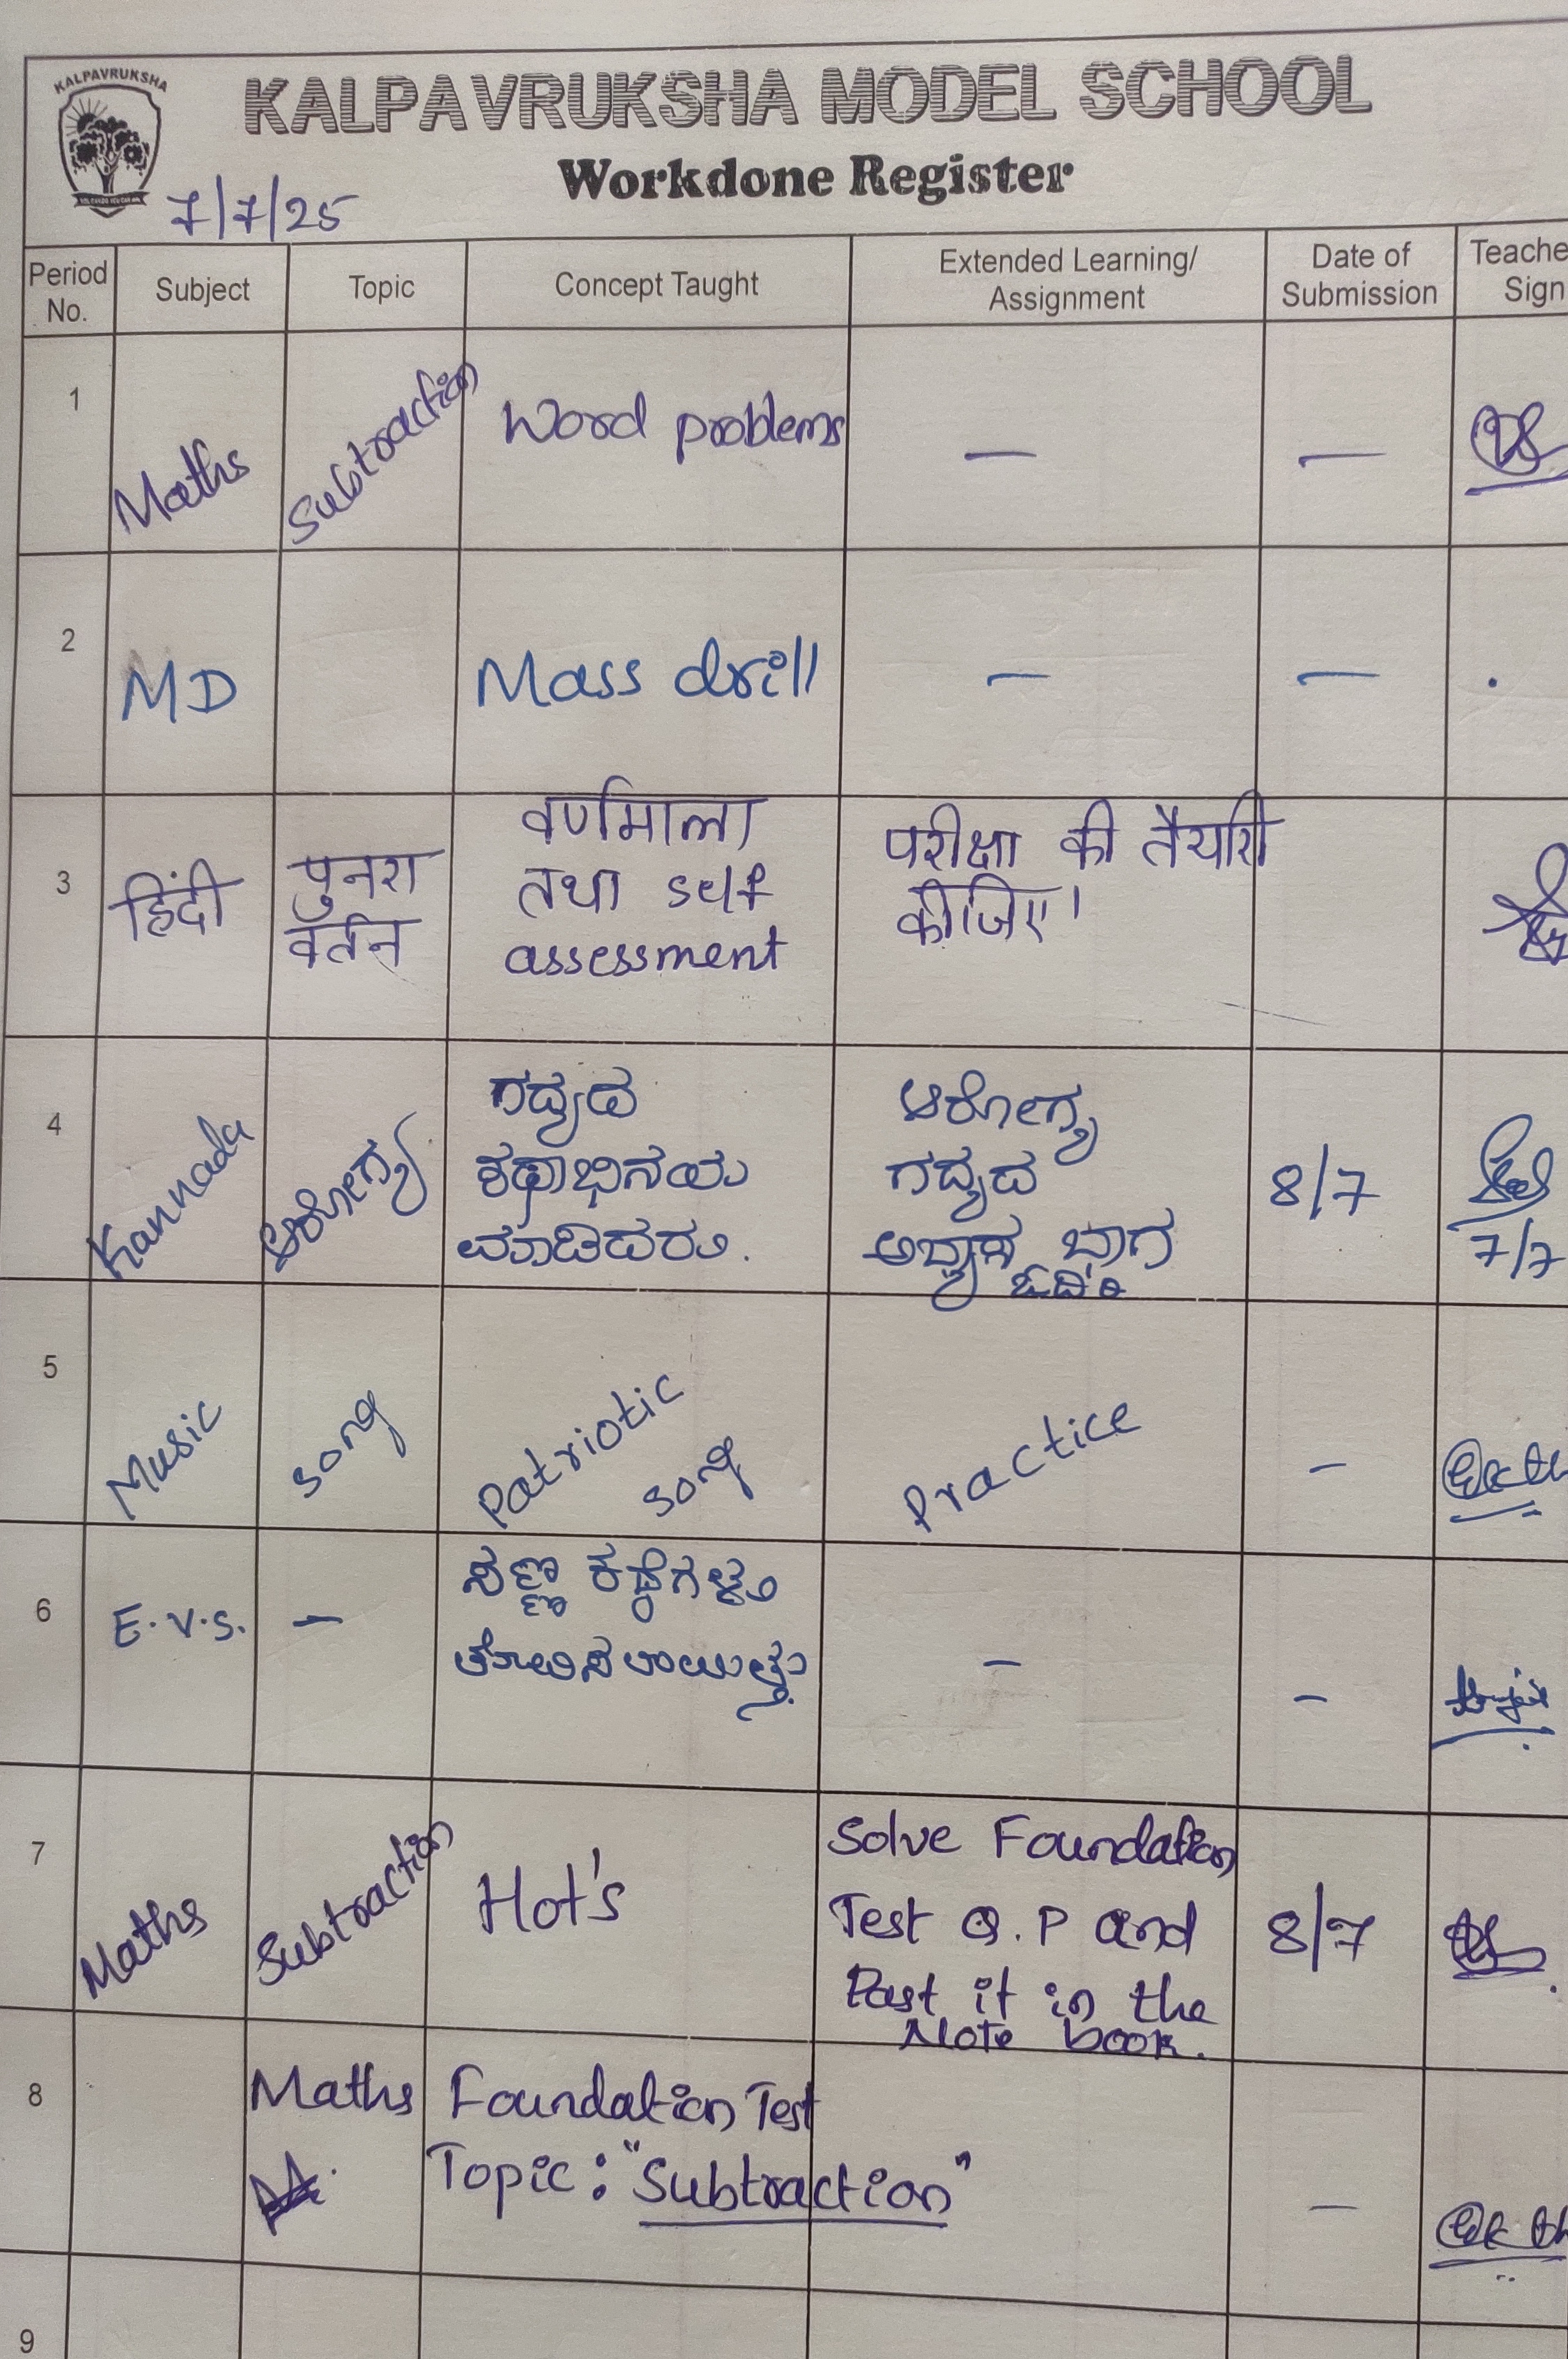 KALPAVRUKSHA
KALPAVRUKSHA MODEL SCHOOL
Workdone Register
7/7/25
Period No. Subject Topic Concept Taught Extended Learning/ Assignment Date of Submission Teache Sign
1 Maths Subtraction Word problems — —
2 MD Mass drill — —
3 हिंदी पुनरा वर्तन
वर्णमाला
तथा self
assessment
परीक्षा की तैयारी
कीजिए।
4 Kannada ಆರೋಗ್ಯ
ಗದ್ಯದ
ಕಥಾಭಿನಯ
ಮಾಡಿದರು.
ಆರೋಗ್ಯ
ಗದ್ಯದ
ಅಭ್ಯಾಸ ಭಾಗ
ಓದಿರಿ
8/7
7/7
5 Music song Patriotic song Practice –
6 E.V.S. –
ಸಣ್ಣ ಕಥೆಗಳನ್ನು
ತೋರಿಸಲಾಯಿತು.
– –
7 Maths Subtraction Hot's
Solve Foundation
Test Q.P and
Past it in the
Note book.
8/7
8 Maths Foundation Test
Topic: "Subtraction" —
9